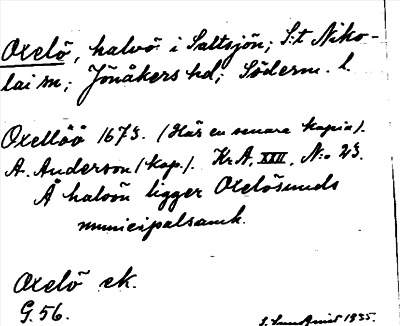 Oxelö, halvö i Saltsjön; S:t Niko-
lai sn; Jönåkers hd; Söderm. l.
Oxellöö 1673. (Här en senare kopia).
A. Anderson (kop.). Kr.A. XXII. N:o 23.
Å halvön ligger Oxelösunds
municipalsamh.
Oxelö ek.
G. 56.
1935.